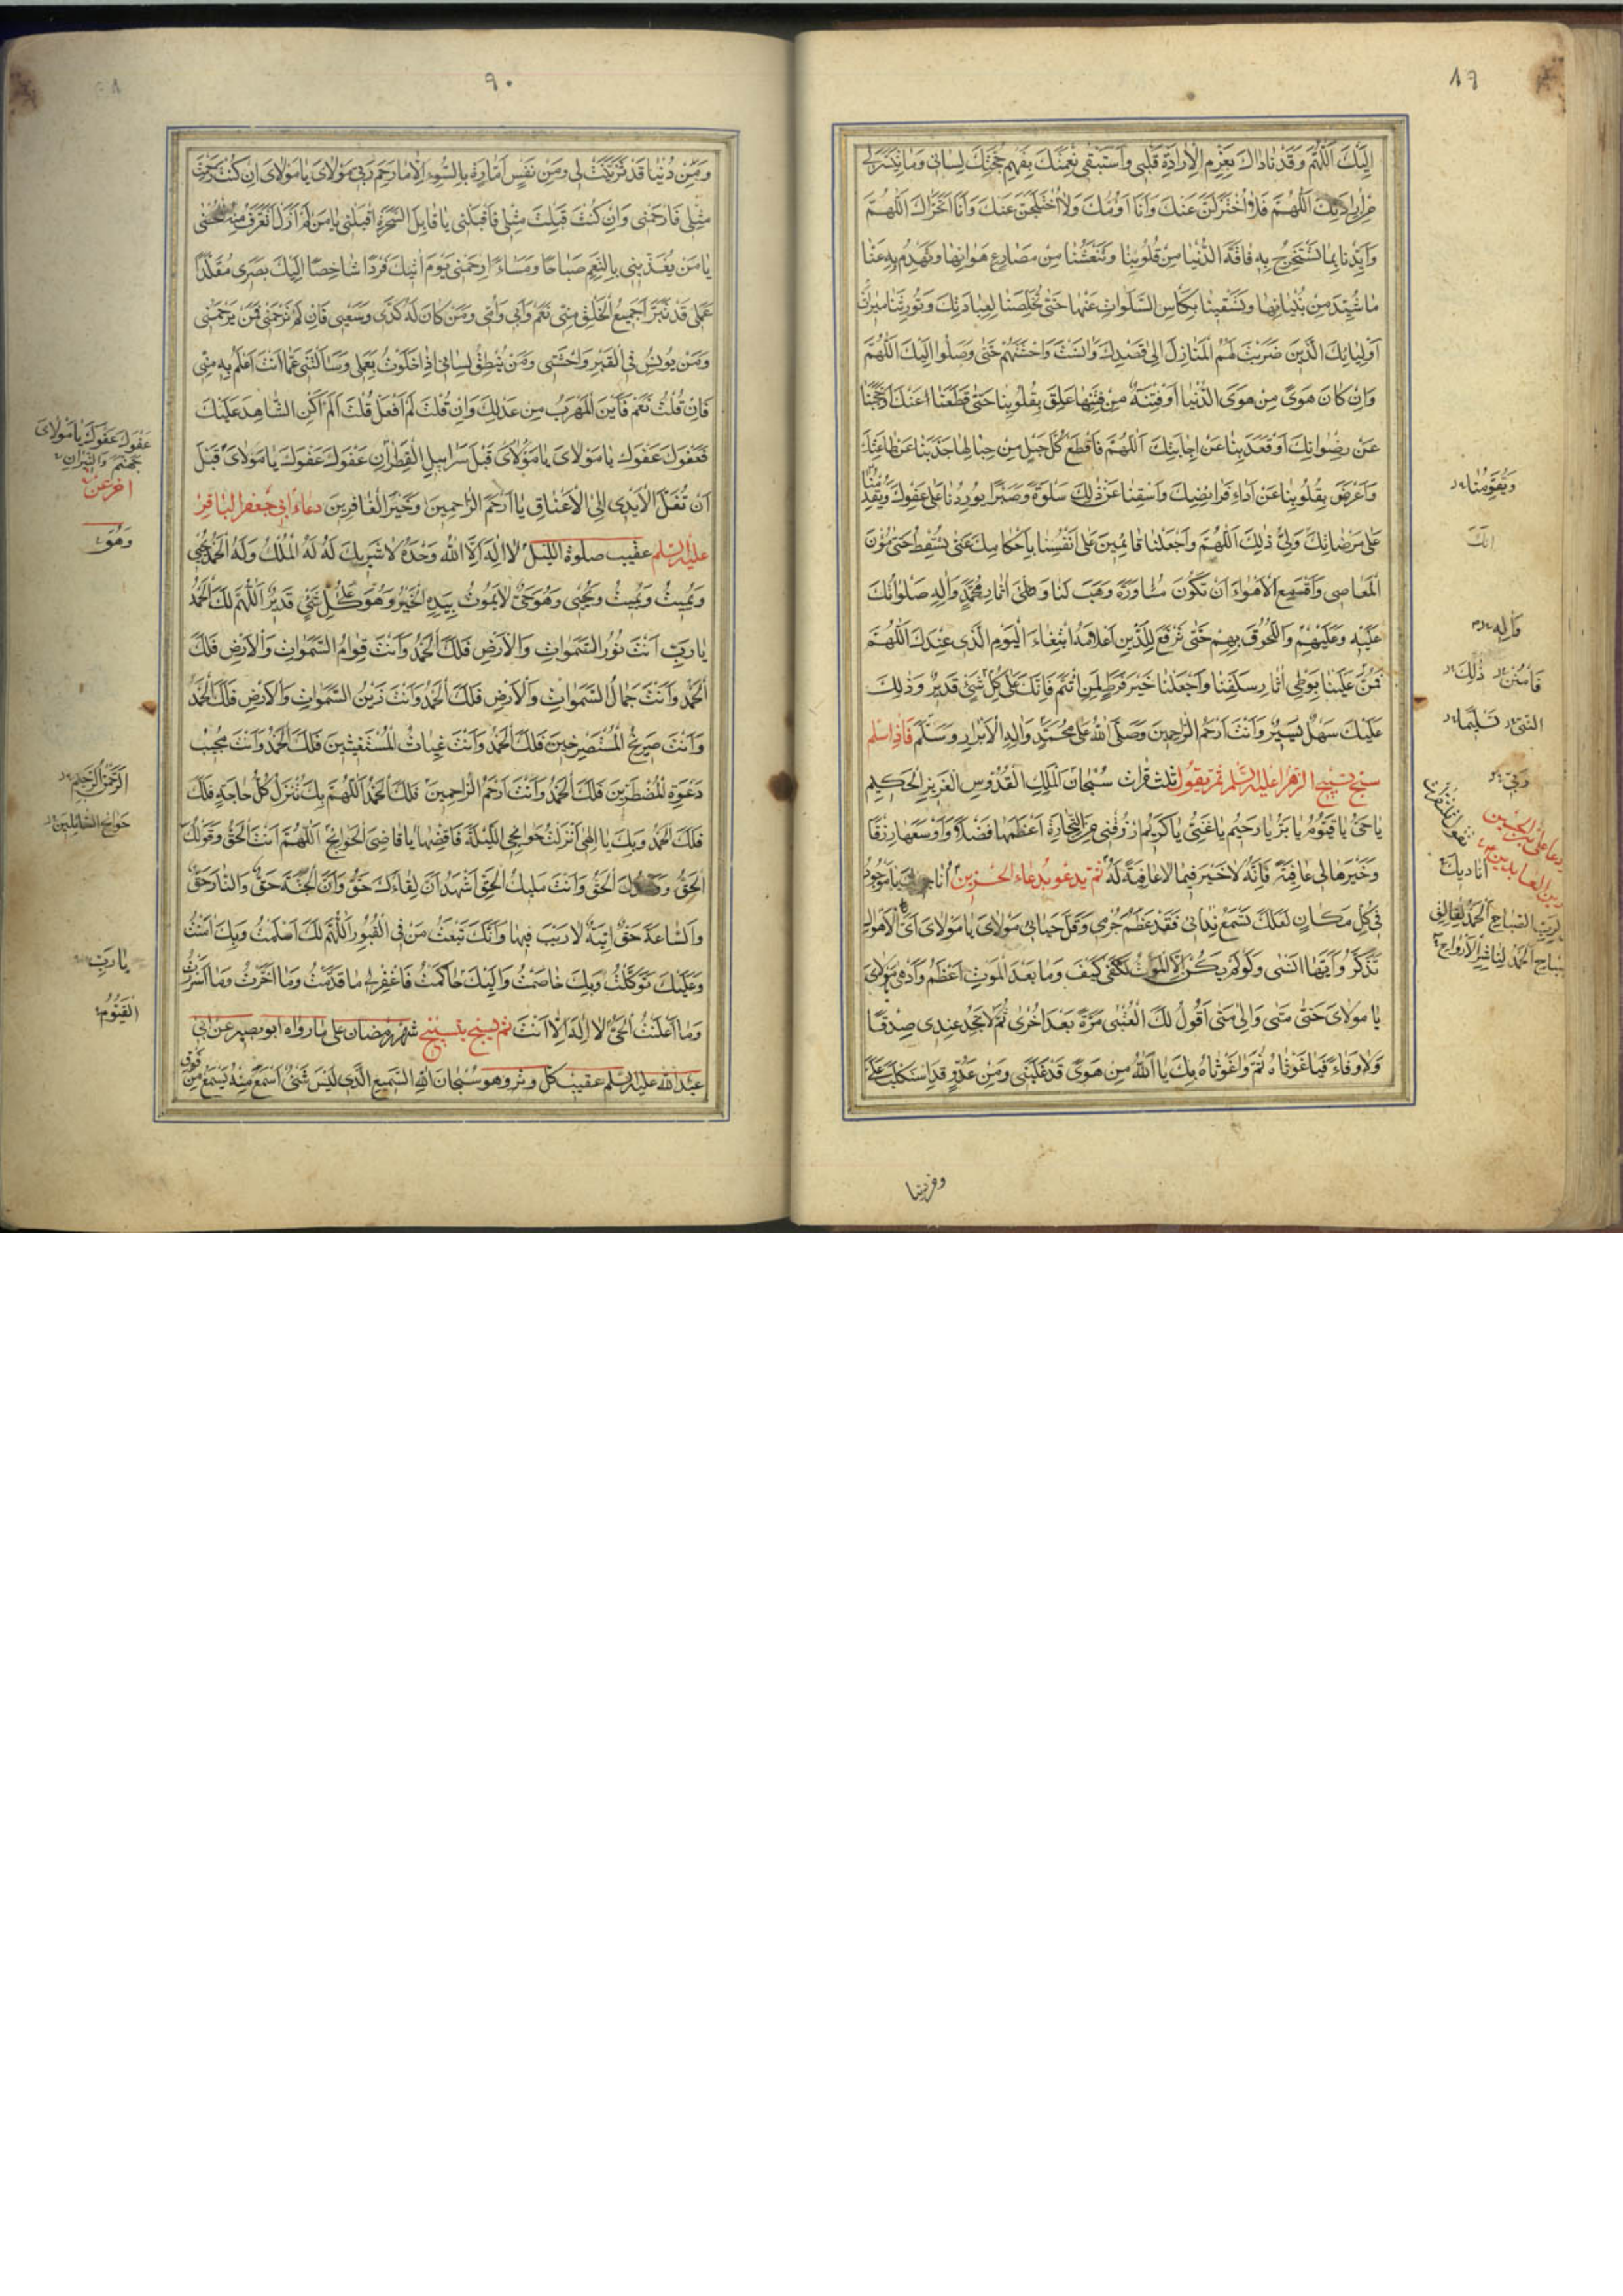 ٨٩
اِلَيْكَ اَللّٰهُمَّ وَقَدْ نَادَاكَ بِعَزْمِ الْاِرَادَةِ قَلْبِي وَاسْتَبْقِي نِعْمَتَكَ بِفَهْمِ حُجَّتِكَ لِسَانِي وَمَا تَيَسَّرَ لِي
مِنْ اِرَادَتِكَ اَللّٰهُمَّ فَلَا اُخْتَزَلَنَّ عَنْكَ وَاَنَا اَؤُمُّكَ وَلَا اُخْتَلَجَنَّ عَنْكَ وَاَنَا اَتَحَرَّاكَ اَللّٰهُمَّ
وَاَيِّدْنَا بِمَا تَسْتَخْرِجُ بِهِ فَاقَةَ الدُّنْيَا مِنْ قُلُوبِنَا وَتَنْعَشُنَا مِنْ مَصَارِعِ هَوَانِهَا وَتَهْدِمُ بِهِ عَنَّا
مَا شُيِّدَ مِنْ بُنْيَانِهَا وَتَسْقِينَا بِكَاْسِ السَّلْوَاتِ عَنْهَا حَتّٰى تُخَلِّصَنَا لِعِبَادَتِكَ وَتُورِثَنَا مِيرَاثَ
اَوْلِيَائِكَ الَّذِينَ ضَرَبْتَ لَهُمُ الْمَنَازِلَ اِلَى قَصْدِكَ وَانَسْتَ وَحْشَتَهُمْ حَتّٰى وَصَلُوا اِلَيْكَ اَللّٰهُمَّ
وَاِنْ كَانَ هَوًى مِنْ هَوَى الدُّنْيَا اَوْ فِتْنَةٌ مِنْ فِتَنِهَا عَلِقَ بِقُلُوبِنَا حَتّٰى قَطَعَنَا عَنْكَ اَوْ حَجَبَنَا
عَنْ رِضْوَانِكَ اَوْ قَعَدَ بِنَا عَنْ اِجَابَتِكَ اَللّٰهُمَّ فَاقْطَعْ كُلَّ حَبْلٍ مِنْ حِبَالِهَا جَذَبَنَا عَنْ طَاعَتِكَ
وَاَعْرَضَ بِقُلُوبِنَا عَنْ اَدَاءِ فَرَائِضِكَ وَاسْقِنَا عَنْ ذٰلِكَ سَلْوَةً وَصَبْرًا يُورِدُنَا عَلَى عَفْوِكَ وَيُقْدِمُنَا
عَلَى مَرْضَاتِكَ وَلِيُّ ذٰلِكَ اَللّٰهُمَّ وَاجْعَلْنَا قَائِمِينَ عَلَى اَنْفُسِنَا بِاَحْكَامِكَ حَتّٰى تُسْقِطَ عَنَّا مُؤَنَ
الْمَعَاصِي وَاقْمَعِ الْاَهْوَاءَ اَنْ تَكُونَ مُسَاوِرَةً وَهَبْ لَنَا وَطْىَ اثَارِ مُحَمَّدٍ وَالِهِ صَلَوَاتُكَ
عَلَيْهِ وَعَلَيْهِمْ وَاللُّحُوقَ بِهِمْ حَتّٰى تَرْفَعَ لِلدِّينِ اَعْلَامَهُ ابْتِغَاءَ الْيَوْمِ الَّذِي عِنْدَكَ اَللّٰهُمَّ
فَمُنَّ عَلَيْنَا بِوَطْيِ اثَارِ سَلَفِنَا وَاجْعَلْنَا خَيْرَ فَرَطٍ لِمَنِ ائْتَمَّ فَاِنَّكَ عَلَى كُلِّ شَيْءٍ قَدِيرٌ وَذٰلِكَ
عَلَيْكَ سَهْلٌ يَسِيرٌ وَاَنْتَ اَرْحَمُ الرَّاحِمِينَ وَصَلَّى اللّٰهُ عَلَى مُحَمَّدٍ وَالِهِ الْاَبْرَارِ وَسَلَّمَ فَاِذَا سَلَّمَ
سَبَّحَ تَسْبِيحَ الزَّهْرَا عَلَيْهَا السَّلَم ثُمَّ يَقُولُ ثَلٰثَ مَرَّاتٍ سُبْحَانَ الْمَلِكِ الْقُدُّوسِ الْعَزِيزِ الْحَكِيمِ
يَا حَيُّ يَا قَيُّومُ يَا بَرُّ يَا رَحِيمُ يَا غَنِيُّ يَا كَرِيمُ ارْزُقْنِي مِنَ التِّجَارَةِ اَعْظَمَهَا فَضْلًا وَاَوْسَعَهَا رِزْقًا
وَخَيْرَهَا لِي عَاقِبَةً فَاِنَّهُ لَا خَيْرَ فِيمَا لَا عَاقِبَةَ لَهُ ثُمَّ يَدْعُو بِدُعَاءِ الْحَزِينِ اُنَاجِيكَ يَا مَوْجُودُ
فِي كُلِّ مَكَانٍ لَعَلَّكَ تَسْمَعُ نِدَائِي فَقَدْ عَظُمَ جُرْمِي وَقَلَّ حَيَائِي مَوْلَايَ يَا مَوْلَايَ اَيَّ الْاَهْوَالِ
تَذَكَّرُ وَاَيَّهَا اَنْسٰى وَلَوْ لَمْ يَكُنْ اِلَّا الْمَوْتُ لَكَفٰى كَيْفَ وَمَا بَعْدَ الْمَوْتِ اَعْظَمُ وَاَدْهٰى مَوْلَايَ
يَا مَوْلَايَ حَتّٰى مَتٰى وَاِلٰى مَتٰى اَقُولُ لَكَ الْعُتْبٰى مَرَّةً بَعْدَ اُخْرٰى ثُمَّ لَا تَجِدُ عِنْدِي صِدْقًا
وَلَا وَفَاءً فَيَا غَوْثَاهُ ثُمَّ وَاغَوْثَاهُ بِكَ يَا اَللّٰهُ مِنْ هَوًى قَدْ غَلَبَنِي وَمِنْ عَدُوٍّ قَدِ اسْتَكْلَبَ عَلَيَّ
وَيُقَوِّمُنَا
اِنَّكَ
وَالِهِ
فَامْنُنْ ذٰلِكَ
النَّبِيِّ تَسْلِيمًا
دعا علي بن الحسين
زين العابدين
اُنَادِيكَ
لِرَبِّ الصَّبَاحِ الْحَمْدُ لِفَالِقِ
الْحَمْدُ لِنَاشِرِ الْاَرْوَاحِ
٩٠
وَمِنْ دُنْيَا قَدْ تَزَيَّنَتْ لِي وَمِنْ نَفْسٍ اَمَّارَةٍ بِالسُّوءِ اِلَّا مَا رَحِمَ رَبِّي مَوْلَايَ يَا مَوْلَايَ اِنْ كُنْتَ رَحِمْتَ
مِثْلِي فَارْحَمْنِي وَاِنْ كُنْتَ قَبِلْتَ مِثْلِي فَاقْبَلْنِي يَا قَابِلَ السَّحَرَةِ اقْبَلْنِي يَا مَنْ لَمْ اَزَلْ اَتَعَرَّفُ مِنْهُ الْحُسْنٰى
يَا مَنْ يُغَذِّينِي بِالنِّعَمِ صَبَاحًا وَمَسَاءً ارْحَمْنِي يَوْمَ اتِيكَ فَرْدًا شَاخِصًا اِلَيْكَ بَصَرِي مُقَلَّدًا
عَمَلِي قَدْ تَبَرَّاَ جَمِيعُ الْخَلْقِ مِنِّي نَعَمْ وَاَبِي وَاُمِّي وَمَنْ كَانَ لَهُ كَدِّي وَسَعْيِي فَاِنْ لَمْ تَرْحَمْنِي فَمَنْ يَرْحَمُنِي
وَمَنْ يُونِسُ فِي الْقَبْرِ وَحْشَتِي وَمَنْ يُنْطِقُ لِسَانِي اِذَا خَلَوْتُ بِعَمَلِي وَسَاَلْتَنِي عَمَّا اَنْتَ اَعْلَمُ بِهِ مِنِّي
فَاِنْ قُلْتُ نَعَمْ فَاَيْنَ الْمَهْرَبُ مِنْ عَدْلِكَ وَاِنْ قُلْتُ لَمْ اَفْعَلْ قُلْتَ اَلَمْ اَكُنِ الشَّاهِدَ عَلَيْكَ
فَعَفْوَكَ عَفْوَكَ يَا مَوْلَايَ يَا مَوْلَايَ قَبْلَ سَرَابِيلِ الْقَطِرَانِ عَفْوَكَ عَفْوَكَ يَا مَوْلَايَ قَبْلَ
اَنْ تُغَلَّ الْاَيْدِي اِلَى الْاَعْنَاقِ يَا اَرْحَمَ الرَّاحِمِينَ وَخَيْرَ الْغَافِرِينَ دعاء ابي جعفر الباقر
عليه السلم عقيب صلوة الليل لَا اِلٰهَ اِلَّا اللّٰهُ وَحْدَهُ لَا شَرِيكَ لَهُ لَهُ الْمُلْكُ وَلَهُ الْحَمْدُ يُحْيِي
وَيُمِيتُ وَيُمِيتُ وَيُحْيِي وَهُوَ حَيٌّ لَا يَمُوتُ بِيَدِهِ الْخَيْرُ وَهُوَ عَلٰى كُلِّ شَيْءٍ قَدِيرٌ اَللّٰهُمَّ لَكَ الْحَمْدُ
يَا رَبِّ اَنْتَ نُورُ السَّمٰوَاتِ وَالْاَرْضِ فَلَكَ الْحَمْدُ وَاَنْتَ قِوَامُ السَّمٰوَاتِ وَالْاَرْضِ فَلَكَ
الْحَمْدُ وَاَنْتَ جَمَالُ السَّمٰوَاتِ وَالْاَرْضِ فَلَكَ الْحَمْدُ وَاَنْتَ زَيْنُ السَّمٰوَاتِ وَالْاَرْضِ فَلَكَ الْحَمْدُ
وَاَنْتَ صَرِيخُ الْمُسْتَصْرِخِينَ فَلَكَ الْحَمْدُ وَاَنْتَ غِيَاثُ الْمُسْتَغِيثِينَ فَلَكَ الْحَمْدُ وَاَنْتَ مُجِيبُ
دَعْوَةِ الْمُضْطَرِّينَ فَلَكَ الْحَمْدُ وَاَنْتَ اَرْحَمُ الرَّاحِمِينَ فَلَكَ الْحَمْدُ اَللّٰهُمَّ بِكَ تُنْزَلُ كُلُّ حَاجَةٍ فَلَكَ
فَلَكَ الْحَمْدُ وَبِكَ يَا اِلٰهِي اَنْزَلْتُ حَوَائِجِي اللَّيْلَةَ فَاقْضِهَا يَا قَاضِيَ الْحَوَائِجِ اَللّٰهُمَّ اَنْتَ الْحَقُّ وَقَوْلُكَ
الْحَقُّ الْحَقُّ وَاَنْتَ مَلِيكُ الْحَقِّ اَشْهَدُ اَنَّ لِقَاءَكَ حَقٌّ وَاَنَّ الْجَنَّةَ حَقٌّ وَالنَّارَ حَقٌّ
وَالسَّاعَةَ حَقٌّ اتِيَةٌ لَا رَيْبَ فِيهَا وَاَنَّكَ تَبْعَثُ مَنْ فِي الْقُبُورِ اَللّٰهُمَّ لَكَ اَسْلَمْتُ وَبِكَ امَنْتُ
وَعَلَيْكَ تَوَكَّلْتُ وَبِكَ خَاصَمْتُ وَاِلَيْكَ حَاكَمْتُ فَاغْفِرْ لِي مَا قَدَّمْتُ وَمَا اَخَّرْتُ وَمَا اَسْرَرْتُ
وَمَا اَعْلَنْتُ الْحَيُّ لَا اِلٰهَ اِلَّا اَنْتَ ثم يسبح بتسبيح شهر رمضان على ما رواه ابو بصير عن ابي
عبد اللّٰه عليه السلم عقيب كل وتر وهو سُبْحَانَ اللّٰهِ السَّمِيعِ الَّذِي لَيْسَ شَيْءٌ اَسْمَعَ مِنْهُ يَسْمَعُ مِنْ فَوْقِ
عَفْوَكَ عَفْوَكَ يَا مَوْلَايَ
جَهَنَّمَ وَالنِّيرَانِ
وَهُوَ
الرَّحْمٰنُ الرَّحِيمُ
حَوَائِجَ السَّائِلِينَ
يَا رَبِّ
الْقَيُّومُ